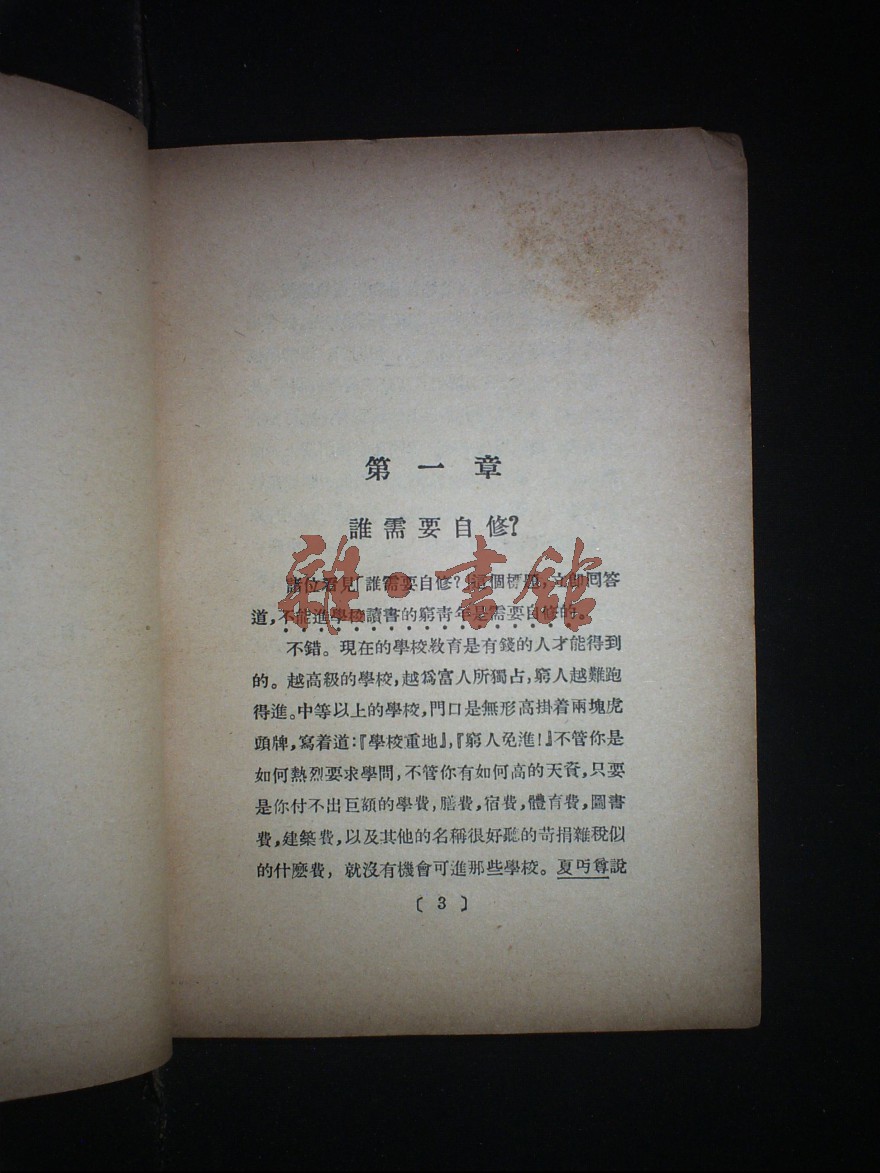 第一章
誰需要自修?
雜·書館
諸位看見『誰需要自修?』這個標題,立即回答
道,不能進學校讀書的窮靑年是需要自修的。
不錯。現在的學校敎育是有錢的人才能得到
的。越高級的學校,越爲富人所獨占,窮人越難跑
得進。中等以上的學校,門口是無形高掛着兩塊虎
頭牌,寫着道:『學校重地』,『窮人免進!』不管你是
如何熱烈要求學問,不管你有如何高的天資,只要
是你付不出巨額的學費,膳費,宿費,體育費,圖書
費,建築費,以及其他的名稱很好聽的苛捐雜稅似
的什麼費,就沒有機會可進那些學校。夏丏尊說
〔3〕